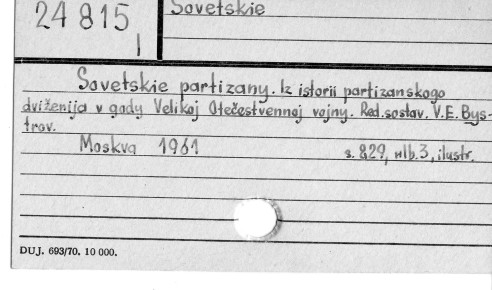 24 815
I
Sovetskie
Sovetskie partizany. Iz istorii partizanskogo
dviženija v gody Velikoj Otečestvennoj vojny. Red.sostav. V.E. Bys-
trov.
Moskva 1961
s. 829, mlb. 3, ilustr.
DUJ. 693/70. 10 000.